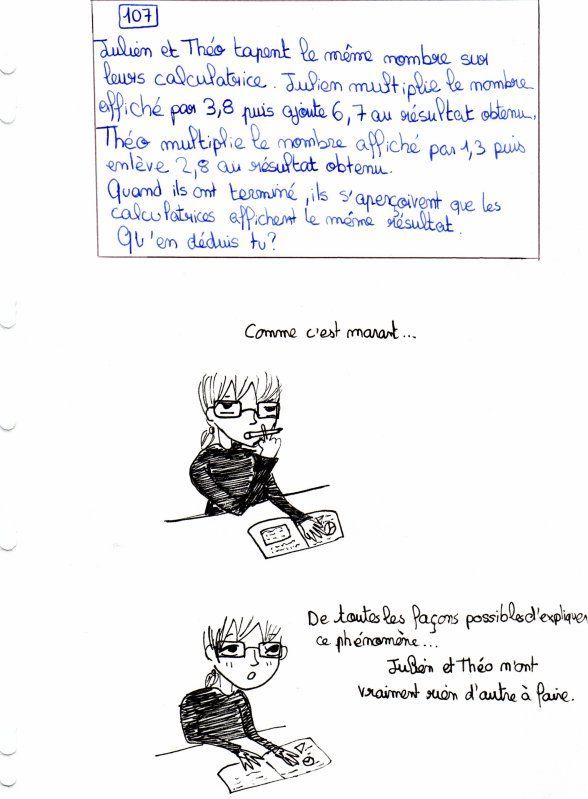 107
Julien et Théo tapent le même nombre sur
leurs calculatrice. Julien multiplie le nombre
affiché par 3,8 puis ajoute 6,7 au résultat obtenu.
Théo multiplie le nombre affiché par 1,3 puis
enlève 2,8 au résultat obtenu.
Quand ils ont terminé, ils s'aperçoivent que les
calculatrices affichent le même résultat.
Qu'en déduis tu?
Comme c'est marant...
De toutes les façons possibles d'expliquer
ce phénomène...
Julien et Théo n'ont
vraiment rien d'autre à faire.